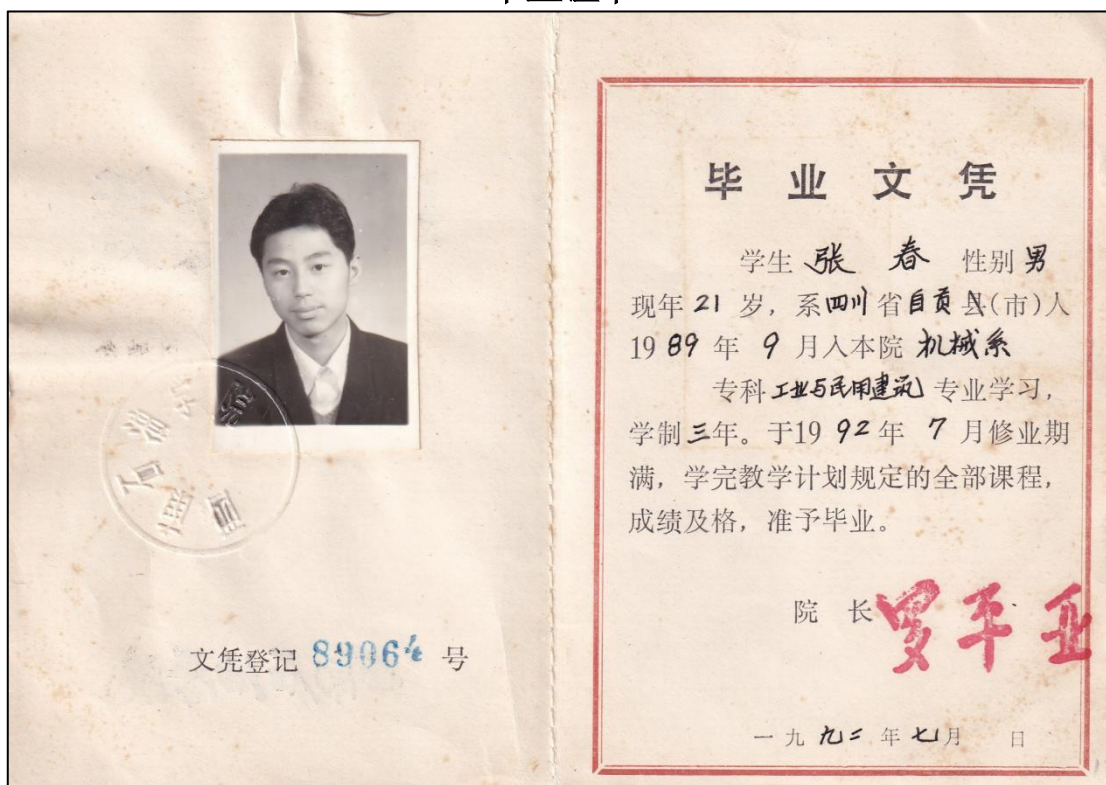 文凭登记 89064 号
毕业文凭
学生 张春 性别 男
现年 21 岁，系四川省自贡县(市)人
1989 年 9 月入本院 机械系
专科 工业与民用建筑 专业学习，
学制三年。于1992年 7 月修业期
满，学完教学计划规定的全部课程，
成绩及格，准予毕业。
院长 罗平亚
一九九二年七月 日